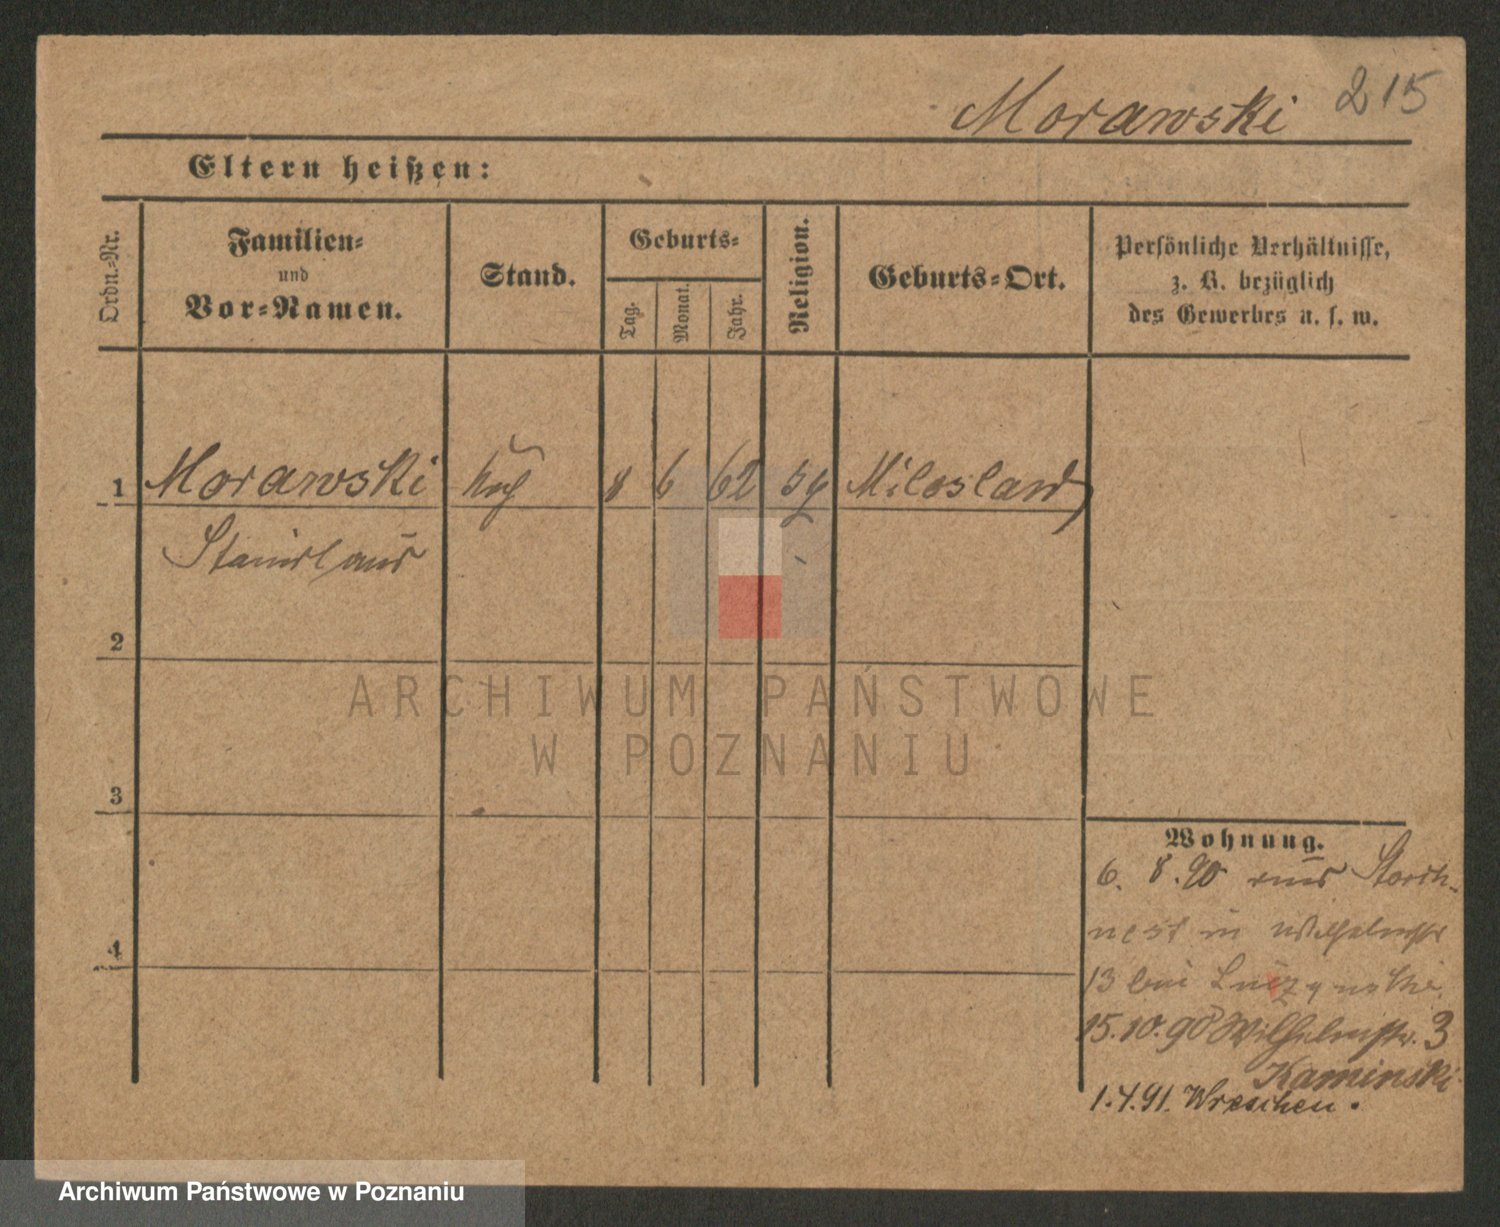 Morawski 215
Eltern heißen:
Ordn.-Nr.
Familien-
und
Vor-Namen.
Stand.
Geburts-
Tag.
Monat.
Jahr.
Religion.
Geburts-Ort.
Persönliche Verhältnisse,
z. B. bezüglich
des Gewerbes u. s. w.
1 Morawski 8 6 62 Miloslaw
Stanislaus
2
3
4
Wohnung.
6. 8. 90 aus Storch-
nest in Wilhelmstr
13 bei
15.10.90 Wilhelmstr. 3
Kaminski
1.4.91. Wreschen.
ARCHIWUM PAŃSTWOWE
W POZNANIU
Archiwum Państwowe w Poznaniu